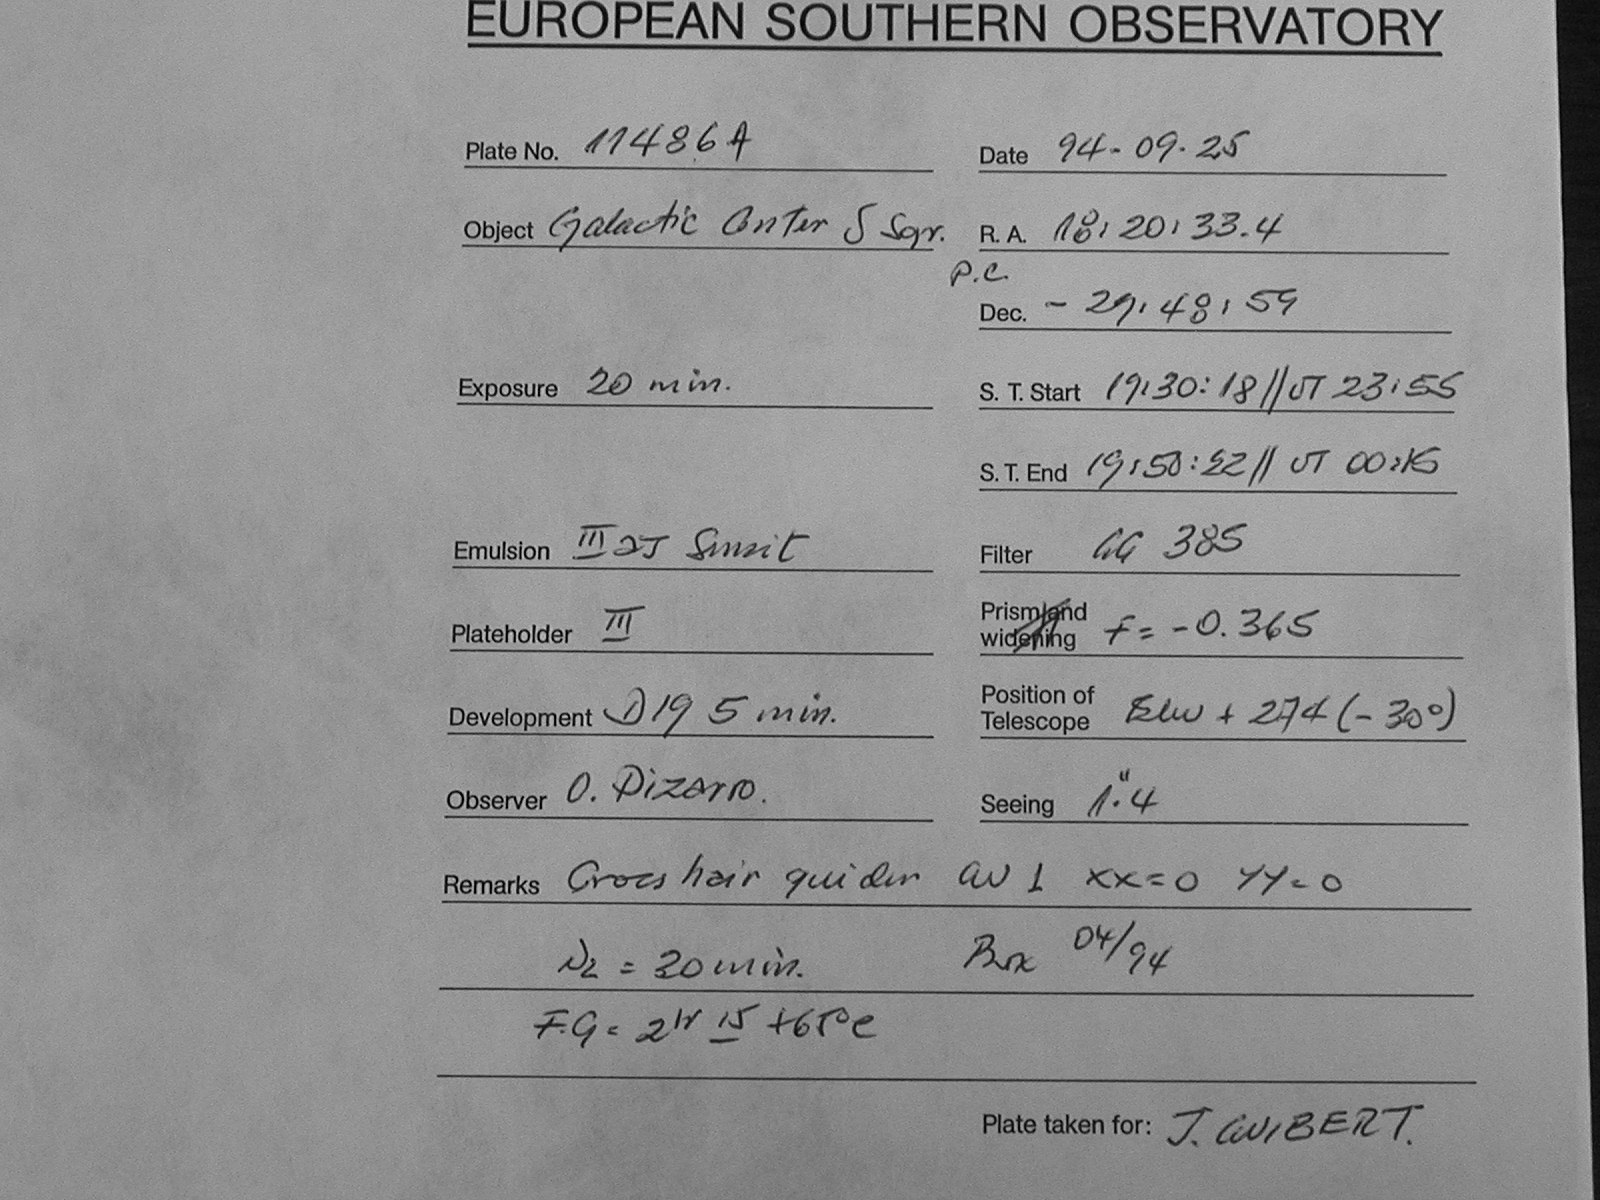 EUROPEAN SOUTHERN OBSERVATORY
Plate No. 11486A Date 94-09-25
Object Galactic Center δ Sgr. R. A. 18:20:33.4
P.C.
Dec. - 29:48:59
Exposure 20 min. S. T. Start 19:30:18 // UT 23:55
S. T. End 19:50:22 // UT 00:15
Emulsion IIIaJ Filter GG 385
Plateholder III Prism and widening F = -0.365
Development D19 5 min. Position of Telescope + 274 (-30°)
Observer O. Pizarro. Seeing 1."4
Remarks Cross hair guider XX=0 YY=0
N2 = 30 min. Box 04/94
F.G = 2hr 15 +65°C
Plate taken for: J. GUIBERT.